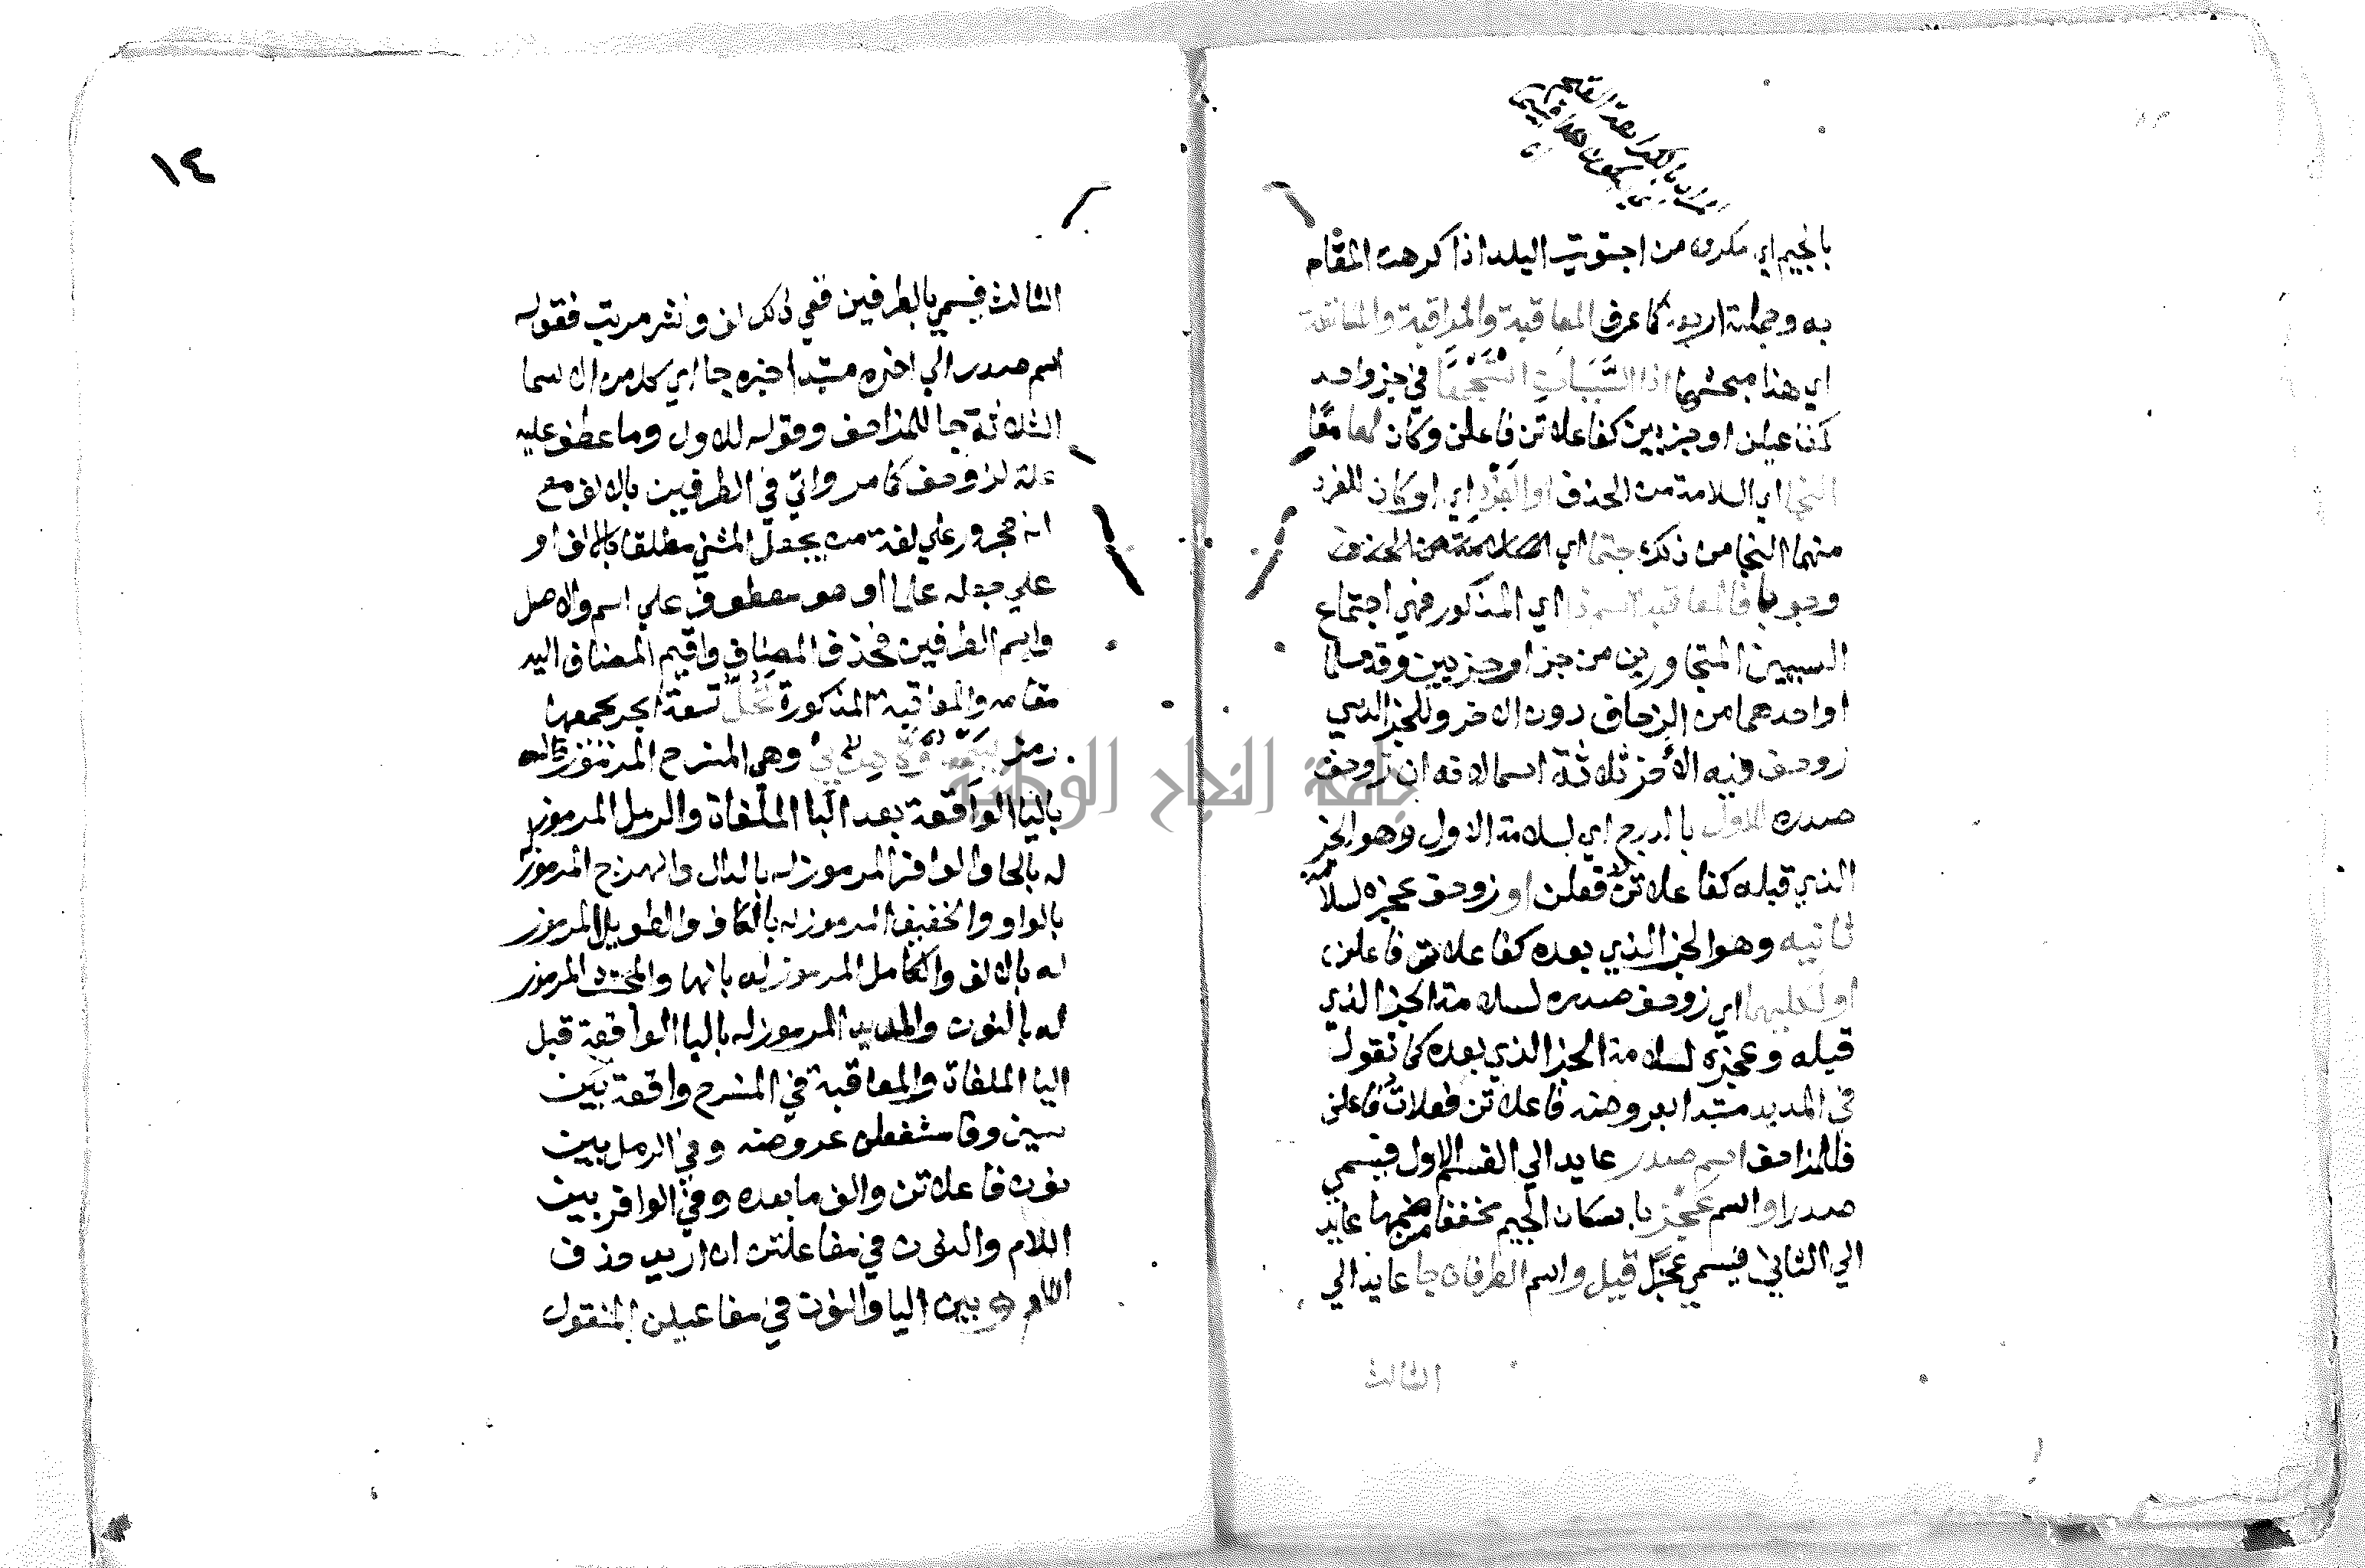 بالجيم اي مكروه من اجتويت البلد اذا كرهت المقام
به وجملته اريد كما عرف المعاقبة والمراقبة والمكانفة
اي هذا مبحثها اذا السببان استجمعا في جز واحد
كمفاعيلن او جزيين كفاعلاتن فاعلن وكان لهما معًا
النجا اي السلامة من الحذف او الفرد اي او كان للفرد
منهما النجا من ذلك حتما اي
وجوبا فالمعاقبة اسم ذا اي المذكور فهي اجتماع
السببين المتجاورين من جز او جزيين وقد سلما
او احدهما من الزحاف دون الاخر وللجز الذي
زوحف فيه الاخر ثلاثة اسما لانه ان زوحف
صدره للاول بالدرج اي لسلامة الاول وهو الجز
الذي قبله كفاعلاتن فعلن او زوحف عجزه لسلامة
ثانيه وهو الجز الذي بعده كفاعلات فاعلن
او لكليهما اي زوحف صدره لسلامة الجز الذي
قبله وعجزه لسلامة الجز الذي بعده كما تقول
في المديد مبتدا بعروضه فاعلاتن فعلات فاعلن
فللمزاحف اسم صدر عايد الي القسم الاول فيسمي
صدرا واسم عجز باسكان الجيم مخففا من ضمها عايد
الي الثاني فيسمي عجزا قيل واسم الطرفان جا عايد الي
الثالث
١٤
الثالث فيسمي بالطرفين ففي ذلك لف ونشر مرتب فقوله
اسم صدر الي اخره مبتدا خبره جا اي كل من الاسما
الثلاثة جا للمزاحف وقوله للاول وما عطف عليه
علة لزوحف كما مر واتي في الطرفين بالالف مع
انه مجرور علي لغة من يجعل المثني مطلقا بالالف او
علي جعله علما او هو معطوف علي اسم والاصل
واسم الطرفين فحذف المضاف واقيم المضاف اليه
مقامه والمعاقبة المذكورة تحل تسعة ابحر يجمعها
رمز وهي المنسرح المرموز له
باليا الواقعة بعد اليا الملغاة والرمل المرموز
له بالحا والوافر المرموز له بالدال والهزج المرموز له
بالواو والخفيف المرموز له بالكاف والطويل المرموز
له بالالف والكامل المرموز له بالها والمجتث المرموز
له بالنون والمديد المرموز له باليا الواقعة قبل
اليا الملغاة والمعاقبة في المنسرح واقعة بين
سين وفا مستفعلن عروضه وفي الرمل بين
نون فاعلاتن والف ما بعده وفي الوافر بين
اللام والنون في مفاعلتن ان اريد حذف
اللام وبين اليا والنون في مفاعيلن المنقول
جامعة النجاح الوطنية